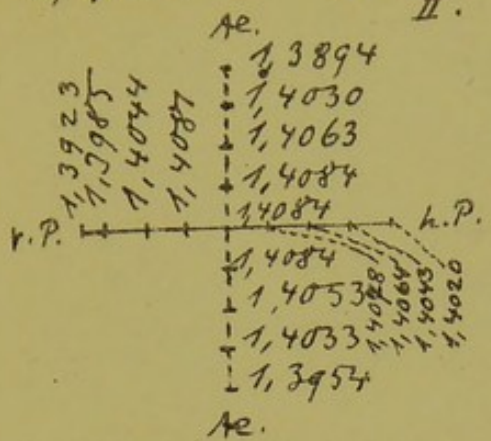 II.
Ae.
1,3894
1,4030
1,4063
1,4084
1,4084
1,3923
1,3985
1,4044
1,4081
v.P.
h.P.
1,4084
1,4053
1,4033
1,3954
1,4064
1,4043
1,4020
Ae.